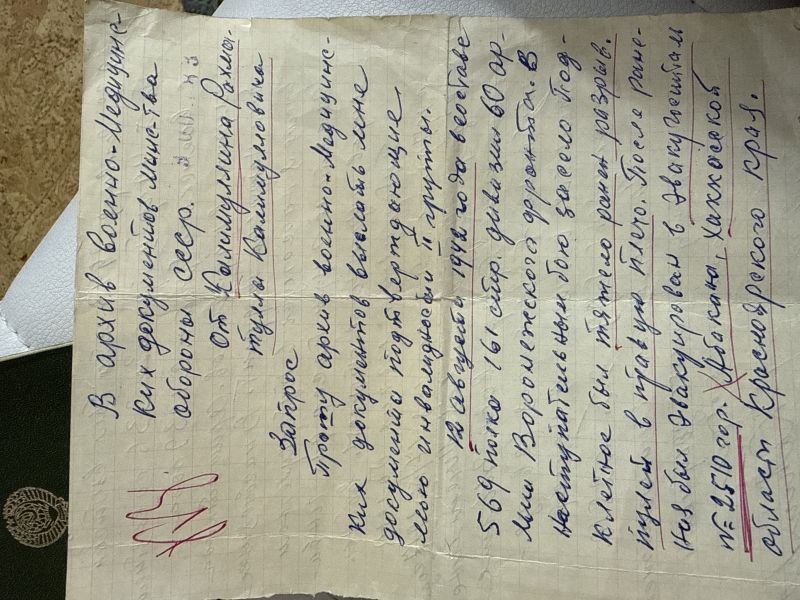 В архив военно-Медицинс-
ких документов Мин-ства
обороны СССР.
от Галимуллина Рахма-
туллы Калимулловича
Запрос
Прошу архив военно-Медицинс-
ких документов выслать мне
документы подтверждающие,
мою инвалидность II группы.
12 августа 1942 года в составе
569 полка 161 стр. дивизии 60 ар-
мии Воронежского фронта. В
наступательным бою за село Под-
клетное был тяжело ранен разрыв.
пулей в правую плечо. После ране-
ния был эвакуирован в эвакугоспитал
№ 2510 гор. Абакана, Хаккасской
области Красноярского края.